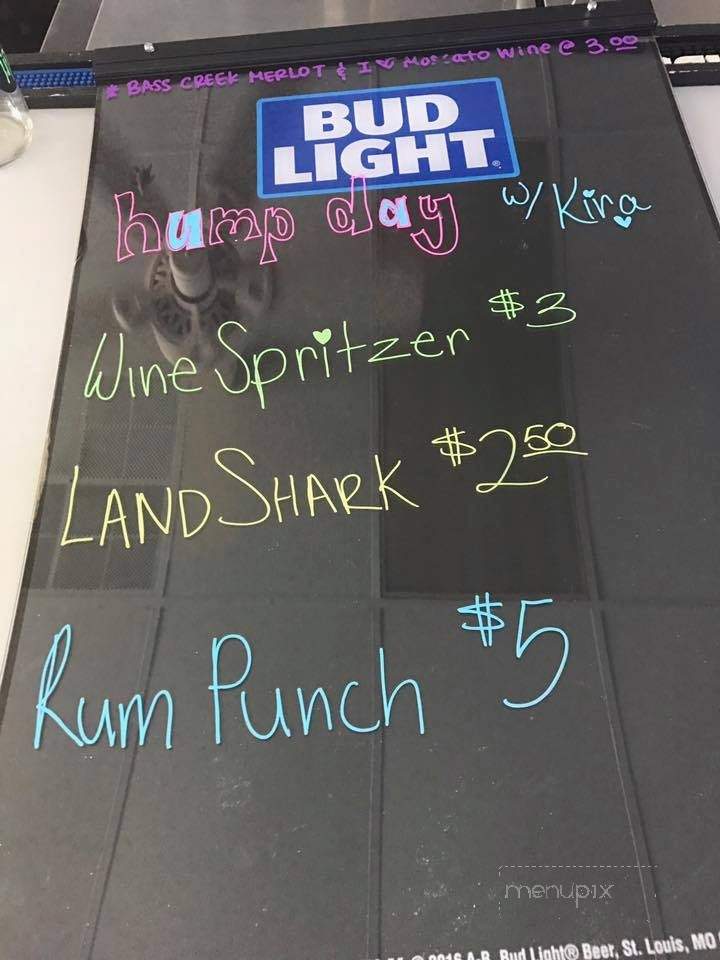 * BASS CREEK MERLOT & I ♥ Moscato Wine @ 3.00
BUD
LIGHT®
hump day w/ Kira
Wine Spritzer $3
LAND SHARK $2.50
Rum Punch $5
menupix
© 2016 A-B, Bud Light® Beer, St. Louis, MO